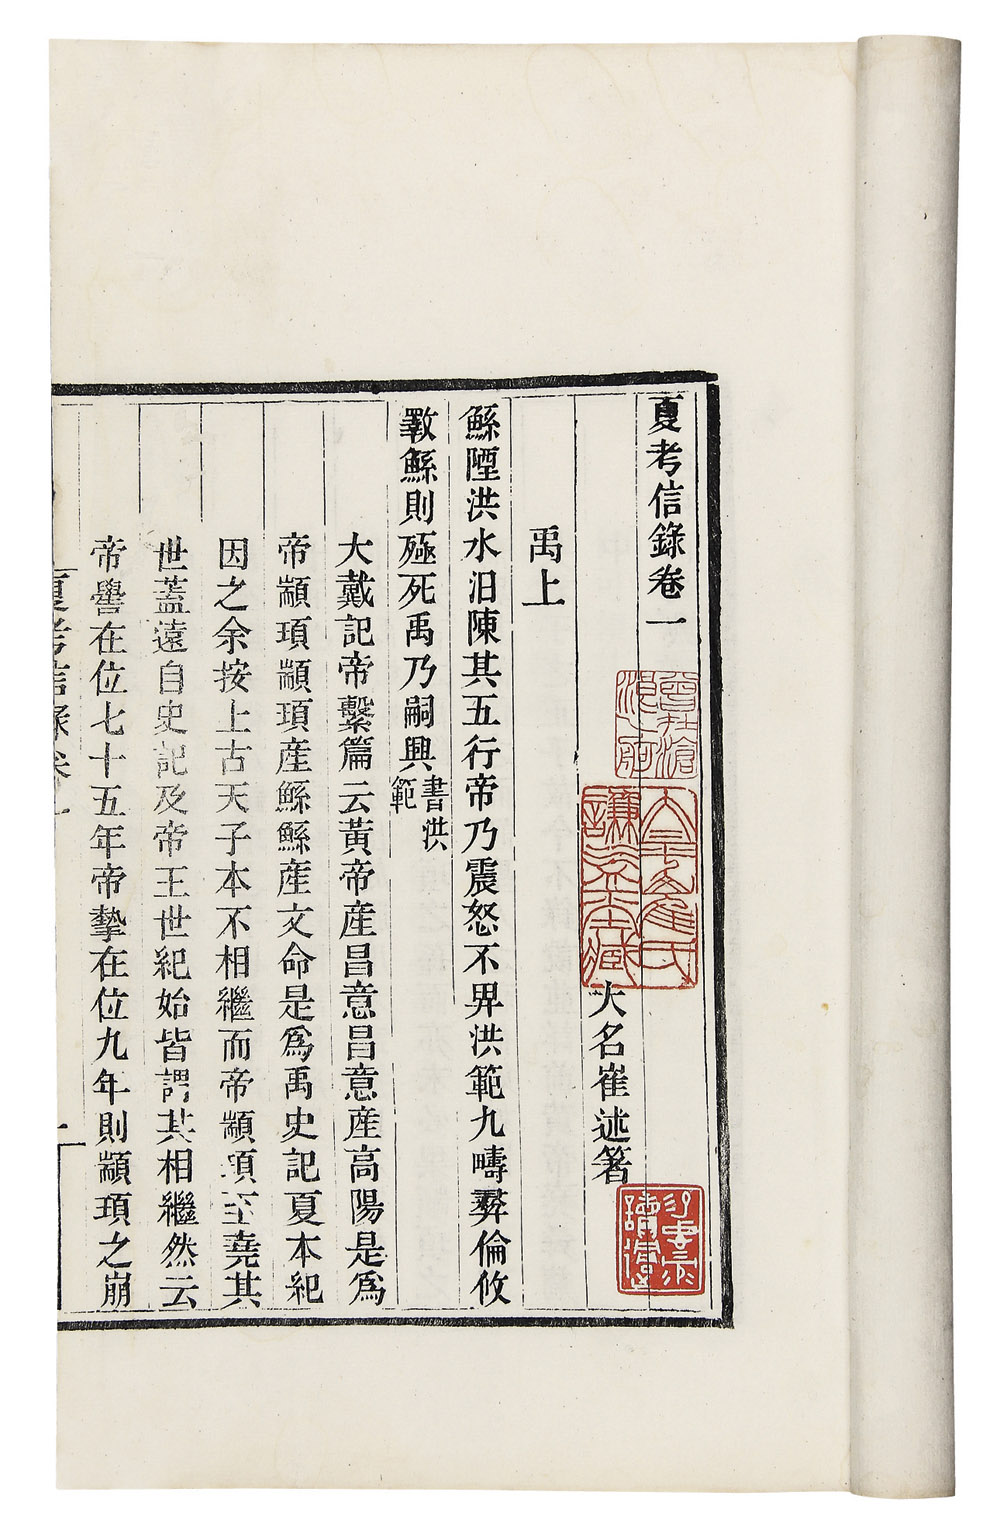 夏考信錄卷一
大名崔述著
禹上
鯀陻洪水汨陳其五行帝乃震怒不畀洪範九疇彝倫攸
斁鯀則殛死禹乃嗣興書洪範
大戴記帝繫篇云黃帝產昌意昌意產高陽是爲
帝顓頊顓頊產鯀鯀產文命是爲禹史記夏本紀
因之余按上古天子本不相繼而帝顓頊至堯其
世蓋遠自史記及帝王世紀始皆謂其相繼然云
帝嚳在位七十五年帝摯在位九年則顓頊之崩
夏考信錄卷一
曾在滄浪府
大名崔氏謙益堂藏